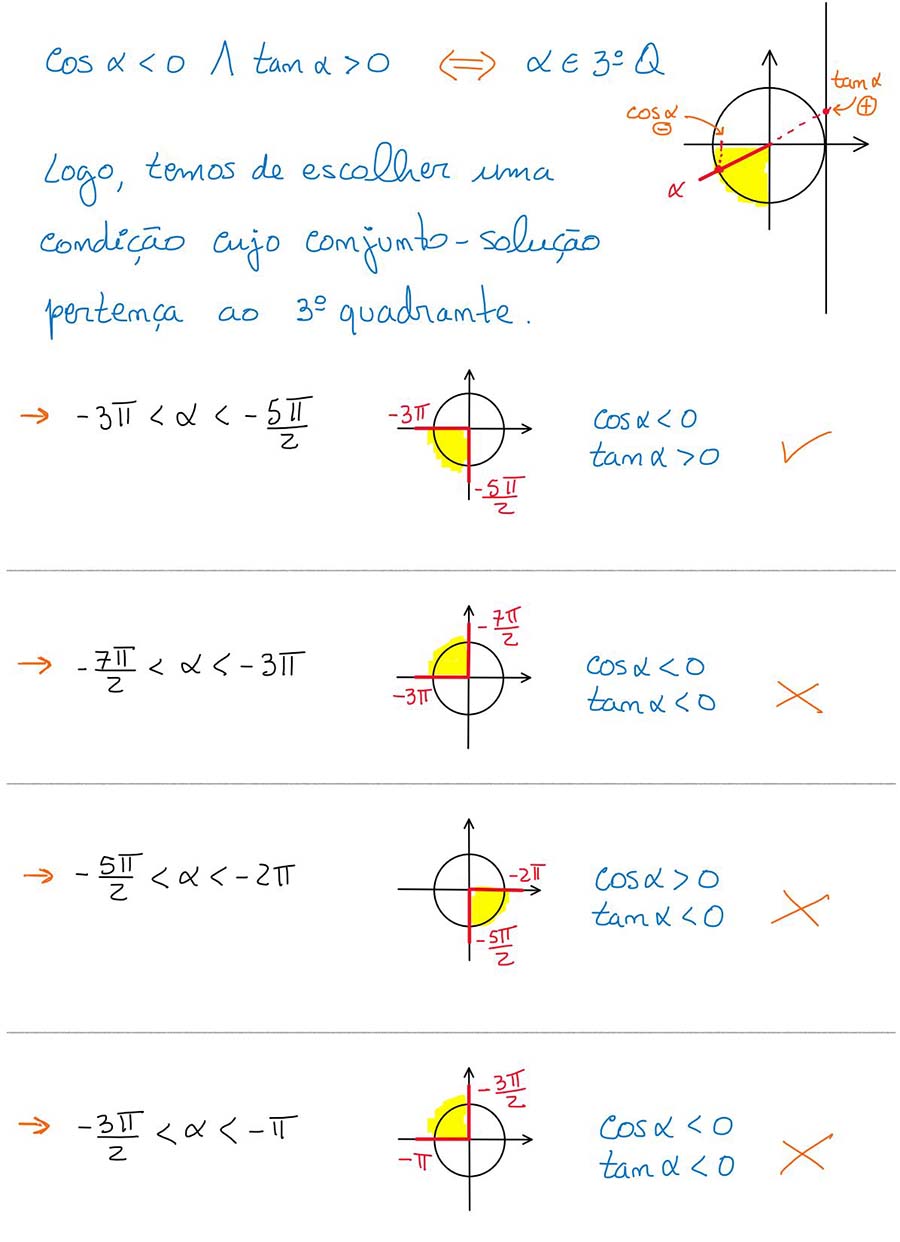 cos α < 0 ∧ tan α > 0 ⇔ α ∈ 3º Q
tan α
⊕
cos α
⊖
α
Logo, temos de escolher uma
condição cujo conjunto-solução
pertença ao 3º quadrante.
→ -3π < α < -5π/2
-3π
-5π/2
cos α < 0
tan α > 0
✓
→ -7π/2 < α < -3π
-7π/2
-3π
cos α < 0
tan α < 0
✗
→ -5π/2 < α < -2π
-2π
-5π/2
cos α > 0
tan α < 0
✗
→ -3π/2 < α < -π
-3π/2
-π
cos α < 0
tan α < 0
✗